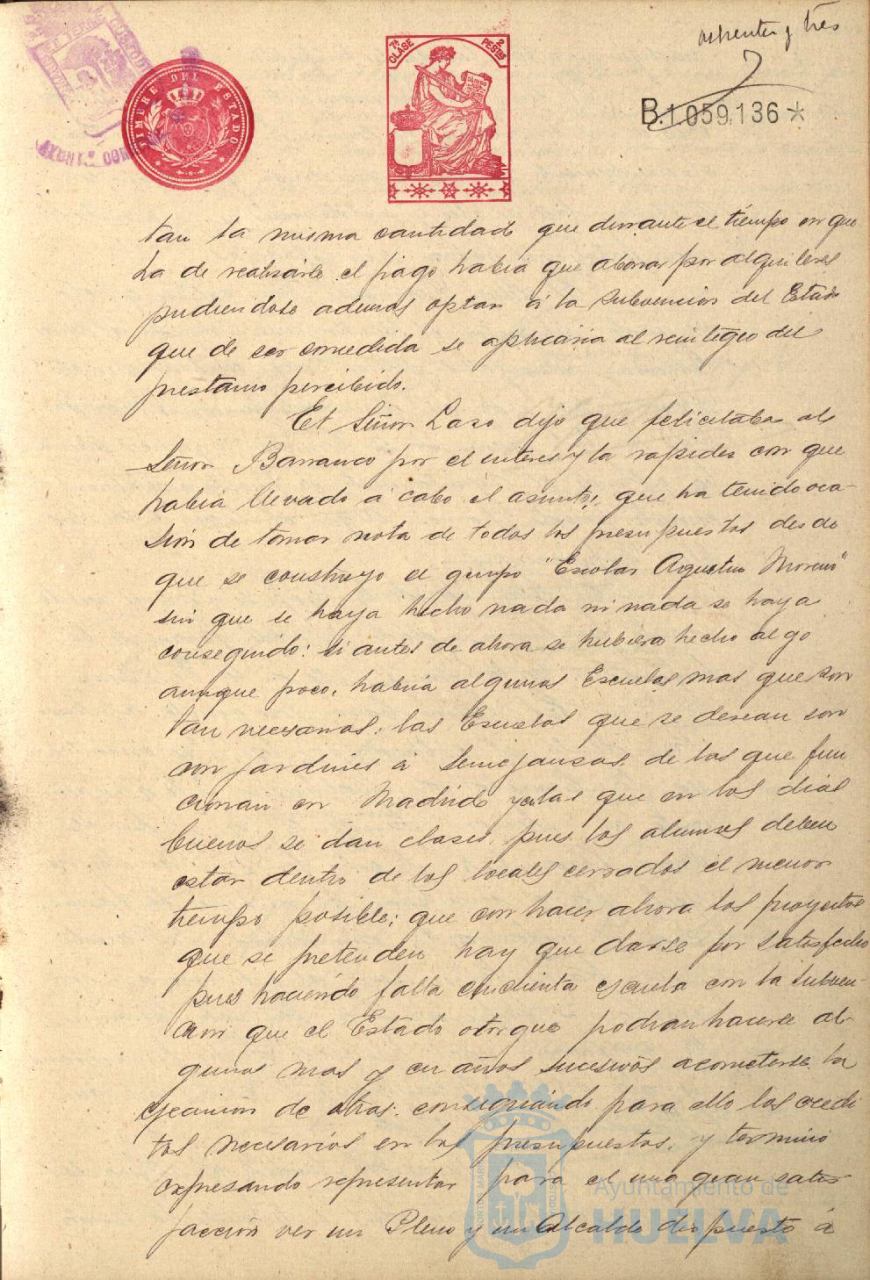 ochenta y tres
TIMBRE DEL ESTADO
7ª CLASE
2 PESETAS
B.1.059.136*
tan la misma cantidad que durante el tiempo en que
ha de realizarse el pago habia que abonar por alquileres
pudiendose ademas optar á la subvencion del Estado
que de ser concedida se aplicaria al reintegro del
prestamo percibido.
El Señor Laso dijo que felicitaba al
Señor Barranco por el interes y la rapidez con que
habia llevado á cabo el asunto; que ha tenido oca-
sion de tomar nota de todos los presupuestos desde
que se construyo el grupo "Escolar Agustin Moreno"
sin que se haya hecho nada ni nada se haya
conseguido: si antes de ahora se hubiera hecho algo
aunque poco, habria algunas Escuelas mas que son
tan necesarias: las Escuelas que se desean son
con jardines á semejanzas de las que fun
cionan en Madrid y las que en los dias
buenos se dan clases, pues los alumnos deben
estar dentro de los locales cerrados el menor
tiempo posible; que con hacer ahora los proyectos
que se pretenden hay que darse por satisfecho
pues haciendo falta cincuenta escuelas con la subven-
cion que el Estado otorgue podran hacerse al-
gunas mas y en años sucesivos acometerse la
ejecucion de otras consiguiendo para ello los credi
tos necesarios en los presupuestos, y termino
expresando representar para el una gran satis
faccion ver un Pleno y un Alcalde dispuesto á
Ayuntamiento de
HUELVA